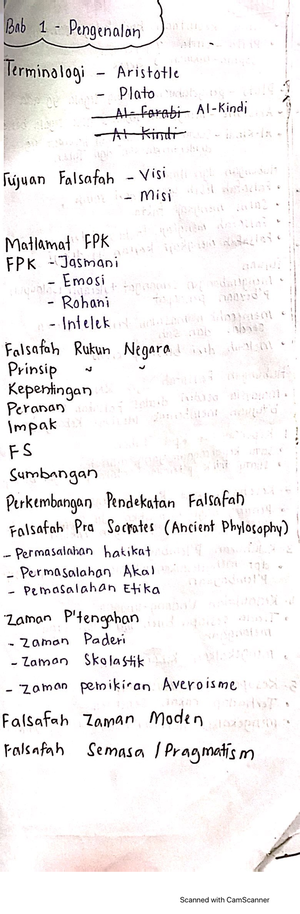 Bab 1 - Pengenalan
Terminologi - Aristotle
- Plato
- Al-Farabi Al-Kindi
- Al Kindi
Tujuan Falsafah - Visi
- Misi
Matlamat FPK
FPK - Jasmani
- Emosi
- Rohani
- Intelek
Falsafah Rukun Negara
Prinsip " "
Kepentingan
Peranan
Impak
FS
Sumbangan
Perkembangan Pendekatan Falsafah
Falsafah Pra Socrates (Ancient Phylosophy)
- Permasalahan hakikat
- Permasalahan Akal
- Pemasalahan Etika
Zaman P'tengahan
- Zaman Paderi
- Zaman Skolastik
- Zaman pemikiran Averoisme
Falsafah Zaman Moden
Falsafah Semasa / Pragmatism
Scanned with CamScanner